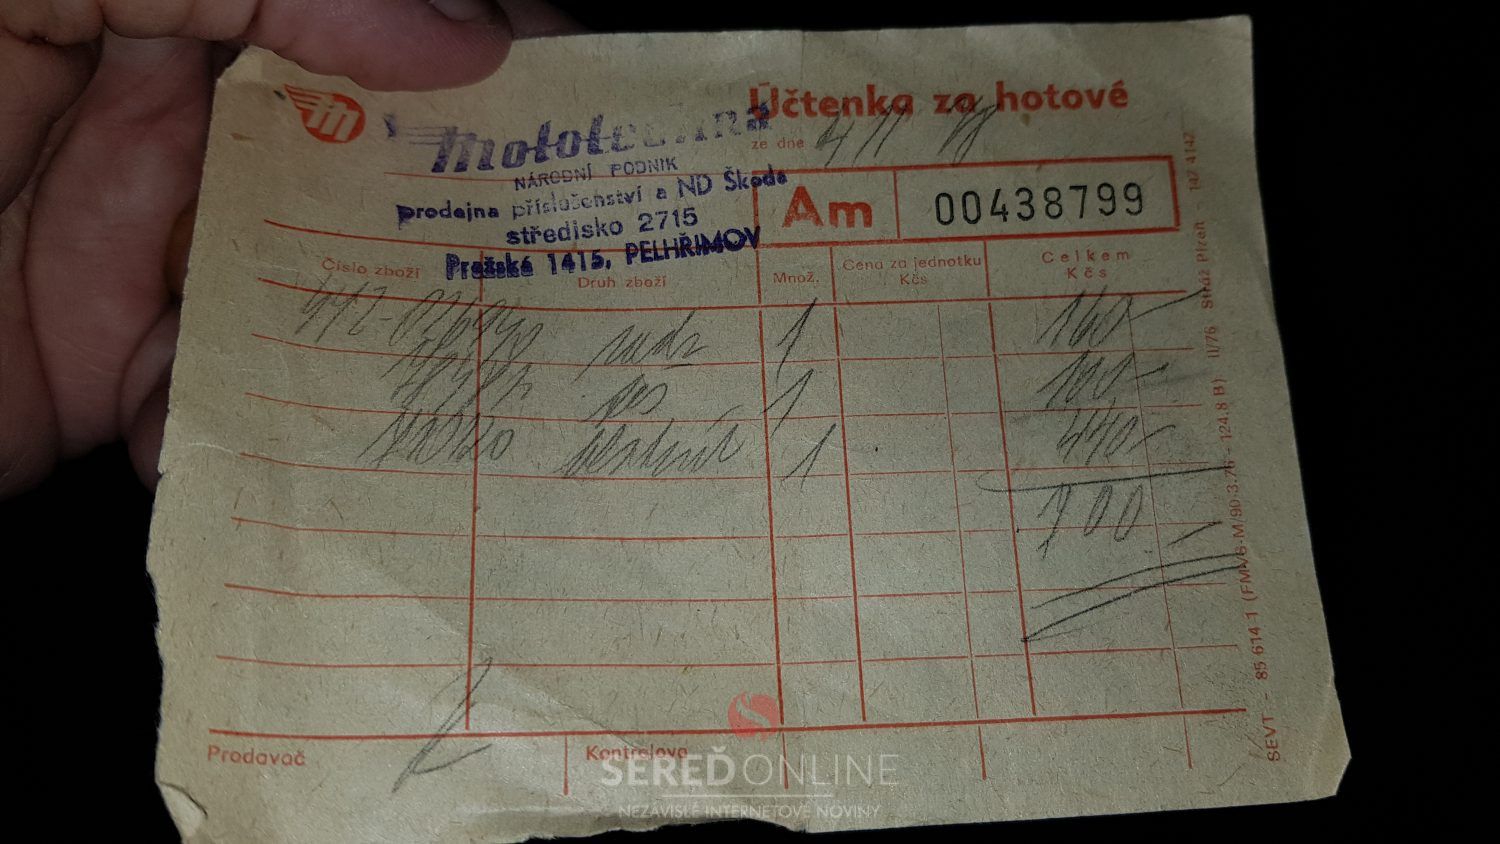 m
Účtenka za hotové
Mototechna
ze dne 4/11
NÁRODNÍ PODNIK
prodejna příslušenství a ND Škoda
středisko 2715
Pražská 1415, PELHŘIMOV
Am 00438799
Číslo zboží Druh zboží Množ. Cena za jednotku Kčs Celkem Kčs
1 160-
1 100-
1 440-
700
Prodavač Kontroloval
SEVT - 85 614 1 (FMVS-M/90-3.76 - 124.8 B) II/76 Stráž Plzeň - 147 4147
SEREĎ ONLINE
NEZÁVISLÉ INTERNETOVÉ NOVINY